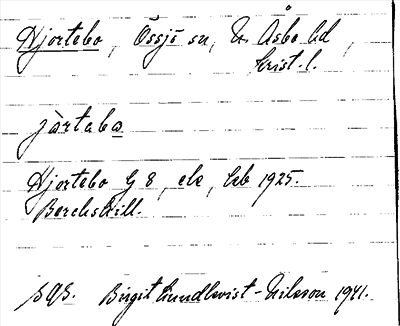 Hjortebo, Össjö sn, N. Åsbo hd,
Krist. l.
jàrtaba
Hjortebo G 8, ek, hb 1925.
Berchskill.
SOS. Birgit Lundkvist-Nilsson 1941.